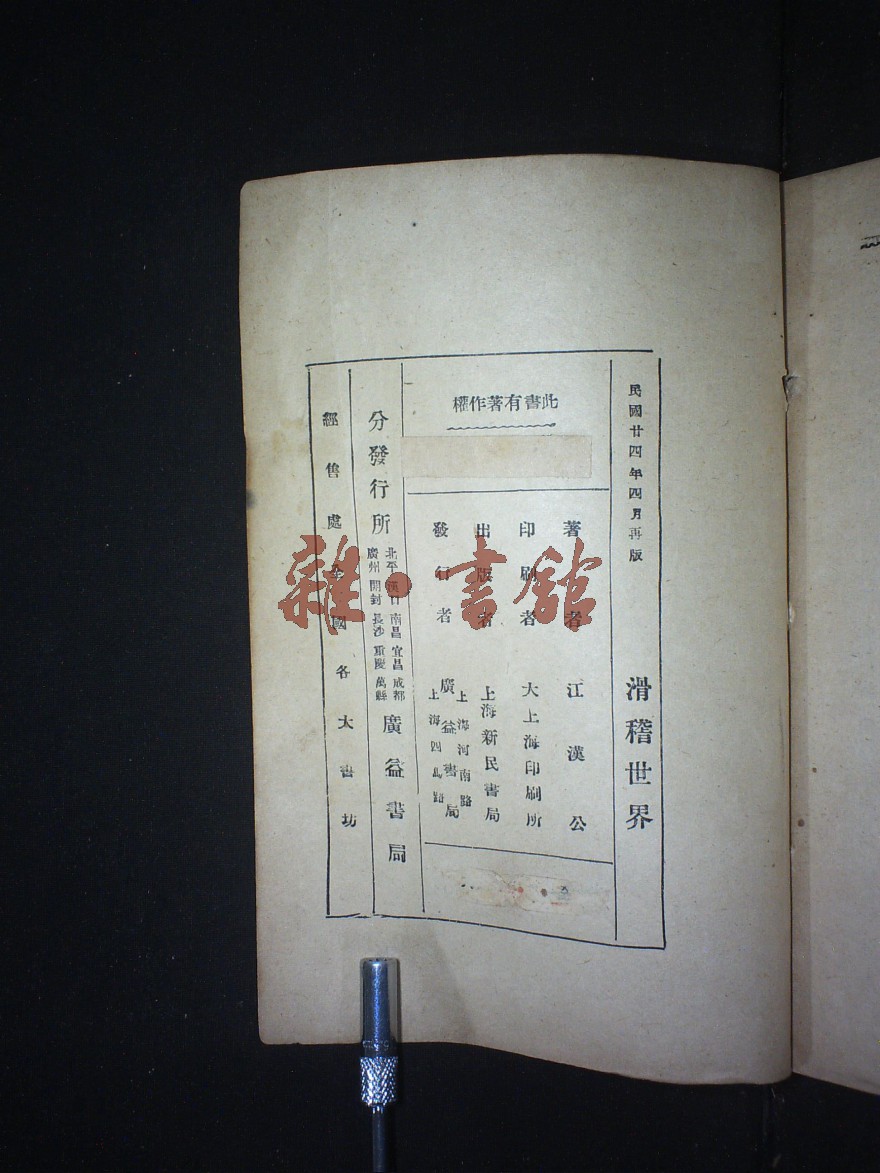 民國廿四年四月再版
滑稽世界
此書有著作權
著者 江漢公
印刷者 大上海印刷所
出版者 上海新民書局
發行者 上海河南路 廣益書局 上海四馬路
分發行所
北平 漢口 南昌 宜昌 成都
廣州 開封 長沙 重慶 萬縣
廣益書局
經售處 全國各大書坊
雜·書館